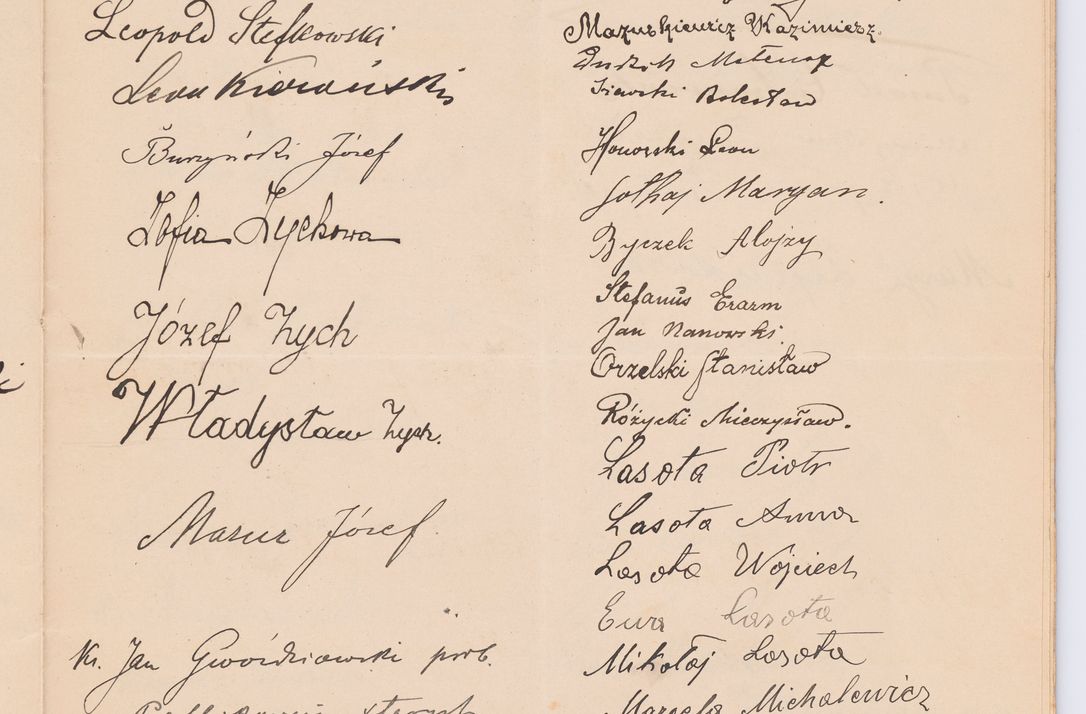 Leopold Stefkowski
Leon
Burzyński Józef
Zofia Zychowa
Józef Zych
Władysław Zych.
Mazur Józef
Ks. Jan Gwoździowski prob.
Mazurkiewicz Kazimierz.
Bolesław
Honorski Leon
Maryan.
Byczek Alojzy
Stefanus Erazm
Jan Nanowski.
Orzelski Stanisław
Różycki Mieczysław.
Lasota Piotr
Lasota Anna
Lasota Wojciech
Ewa Lasota
Mikołaj Lasota
Michalewicz